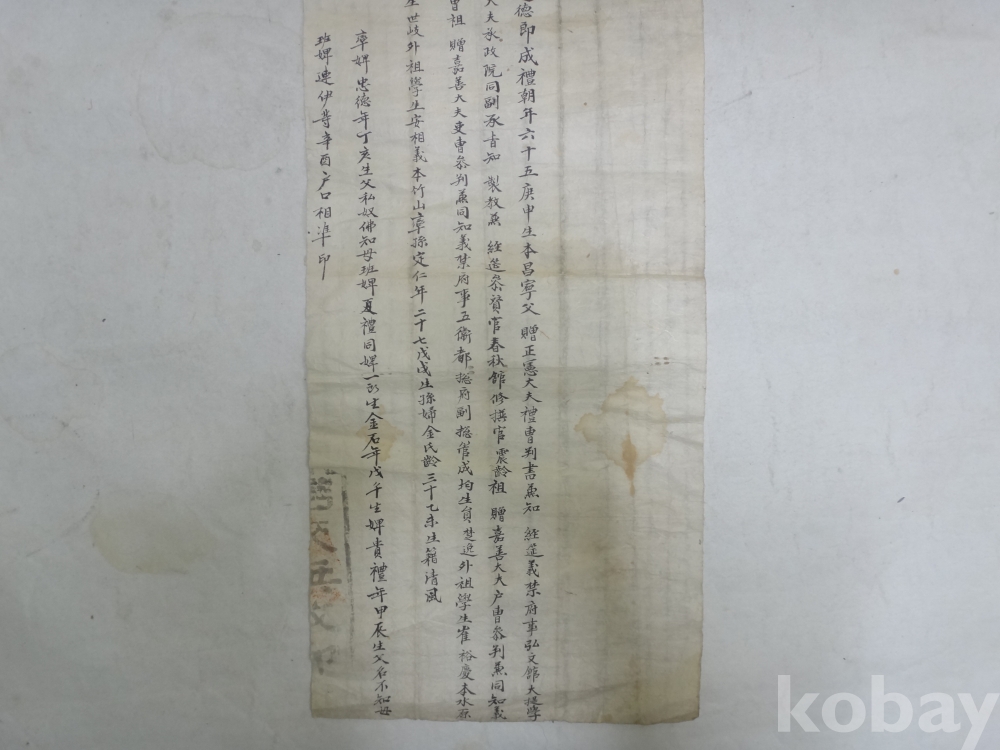 德即成禮朝年六十五庚申生本昌寧父 贈正憲大夫禮曹判書兼知 經筵義禁府事弘文館大提學
大夫承政院同副承旨知 製教兼 經筵參贊官春秋館修撰官震齡祖 贈嘉善大夫戶曹參判兼同知義
曾祖 贈嘉善大夫吏曹參判兼同知義禁府事五衛都摠府副摠管成均生員楚逸外祖學生崔裕慶本水原
生世岐外祖學生安相義本竹山率孫定仁年二十七戊戌生孫婦金氏齡三十乙未生籍清風
率婢忠德年丁亥生父私奴佛知母班婢夏禮同婢一所生金石年戊午生婢貴禮年甲辰生父名不知母
班婢連伊等辛酉戶口相準印
kobay